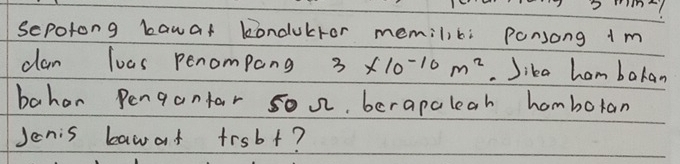 3 mm²?
sepotong kawat konduktor memiliki panjang 1 m
dan luas penampang 3 x 10⁻¹⁰ m². Jika hambatan
bahan pengantar 50 Ω. berapakah hambatan
Jenis kawat trsbt?